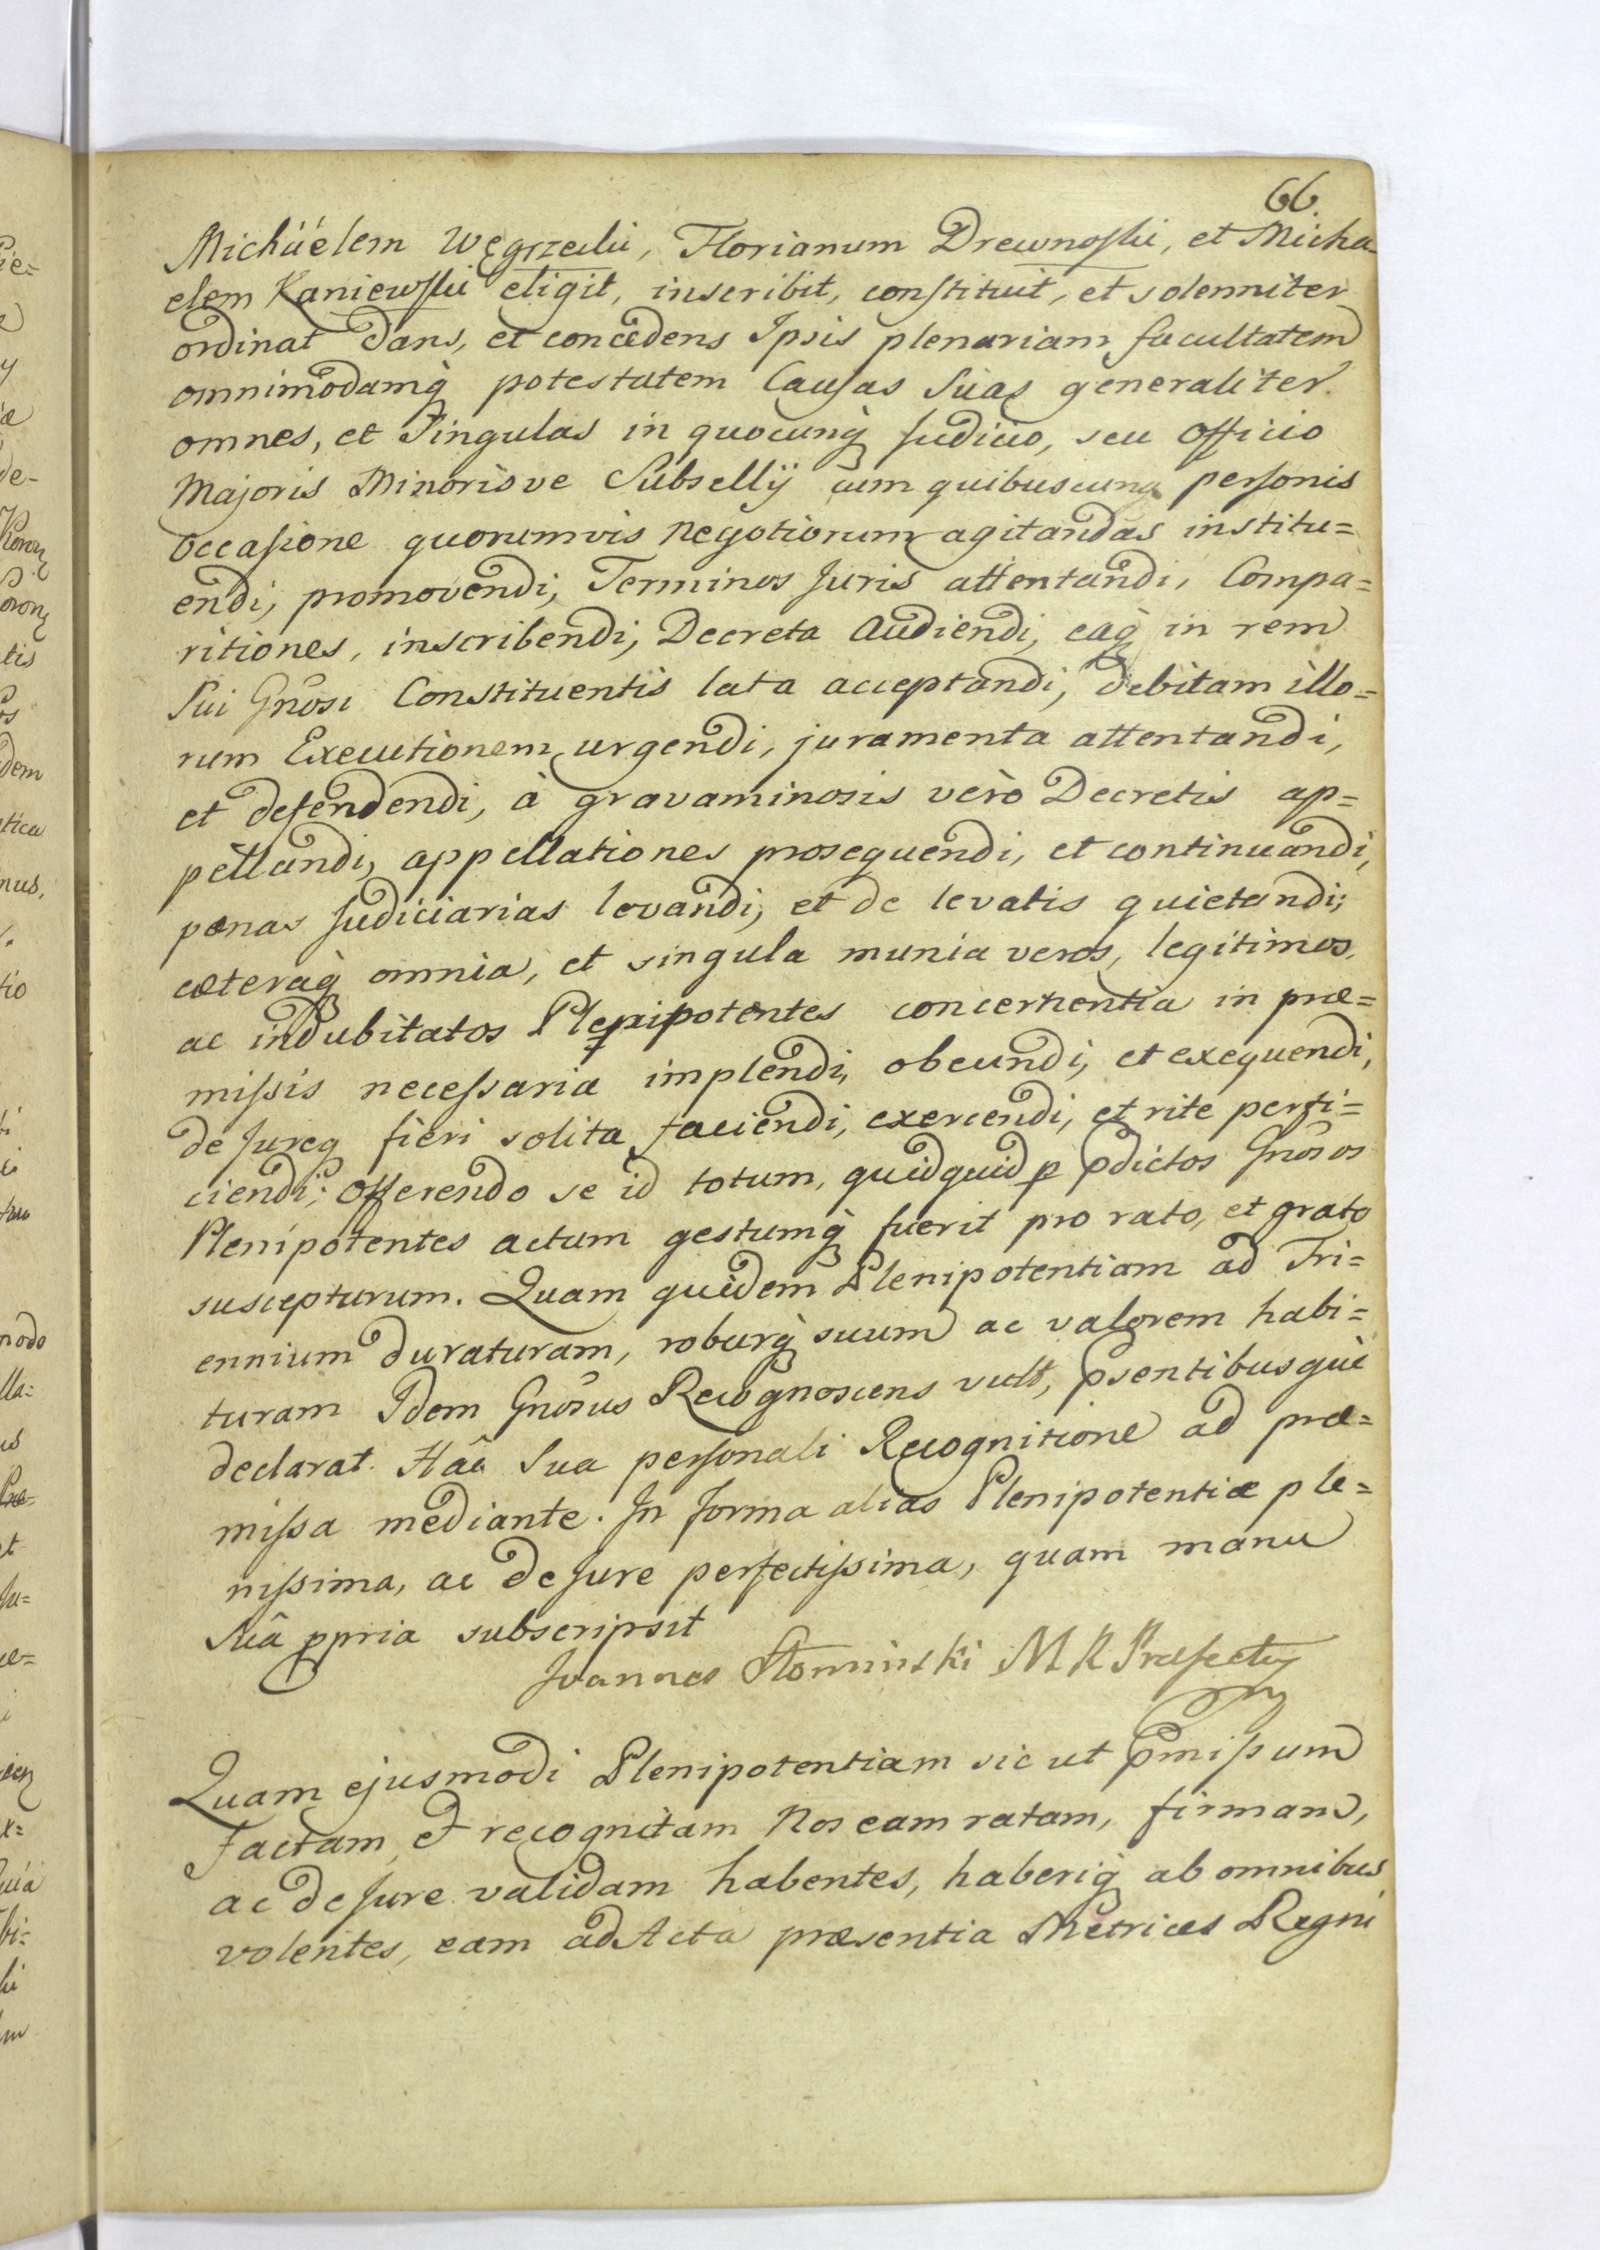 66
Michäelem Węgrzecki, Florianum Drewnoſki, et Micha=
elem Kaniewſki eligit, inscribit, conſtituit, et solenniter
ordinat Dans, et concedens Ipsis plenariam facultatem
omnimodamq̀ potestatem Cauſas Suas generaliter
omnes, et Singulas in quocunq̀ Judicio, seu Officio
Majoris Minorisve Subsellij cum quibuscunq perſonis
occaſione quorumvis Negotiorum agitandas institu=
endi, promovendi, Terminos Juris attentandi, Compa=
ritiones, inscribendi, Decreta Audiendi, eaq̀ in rem
Sui Gnosi Constituentis lata acceptandi, debitam illo=
rum Executionem urgendi, juramenta attentandi,
et defendendi, à gravaminosis verò Decretis ap=
pellandi, appellationes prosequendi, et continuandi,
pœnas Judiciarias levandi, et de levatis quietandi;
cæteraq̀ omnia, et singula munia veros, legitimos,
ac indubitatos Plenipotentes concernentia in præ=
miſsis neceſsaria implendi, obeundi, et exequendi,
de Jureq fieri solita faciendi, exercendi, et rite perfi=
ciendi; Offerendo se id totum, quidquid p pdictos Gnosos
Plenipotentes actum gestumq̀ fuerit pro rato, et grato
suscepturum. Quam quidem Plenipotentiam ad Tri=
ennium duraturam, roburq̀ suum ac valorem habi=
turam Idem Gnosus Recognoscens vult, psentibusquè
declarat. Hâc Sua perſonali Recognitione ad præ=
miſsa mediante. In forma alias Plenipotentiæ ple=
niſsima, ac de Jure perfectiſsima, quam manu
Suâ ppria subscripsit
Joannes Słominski M R Præfectus
mp
Quam ejusmodi Plenipotentiam sic ut pmiſsum
Factam, et recognitam Nos eam ratam, firmam,
ac de Jure validam habentes, haberiq̀ ab omnibus
volentes, eam ad Acta præsentia Metrices Regni